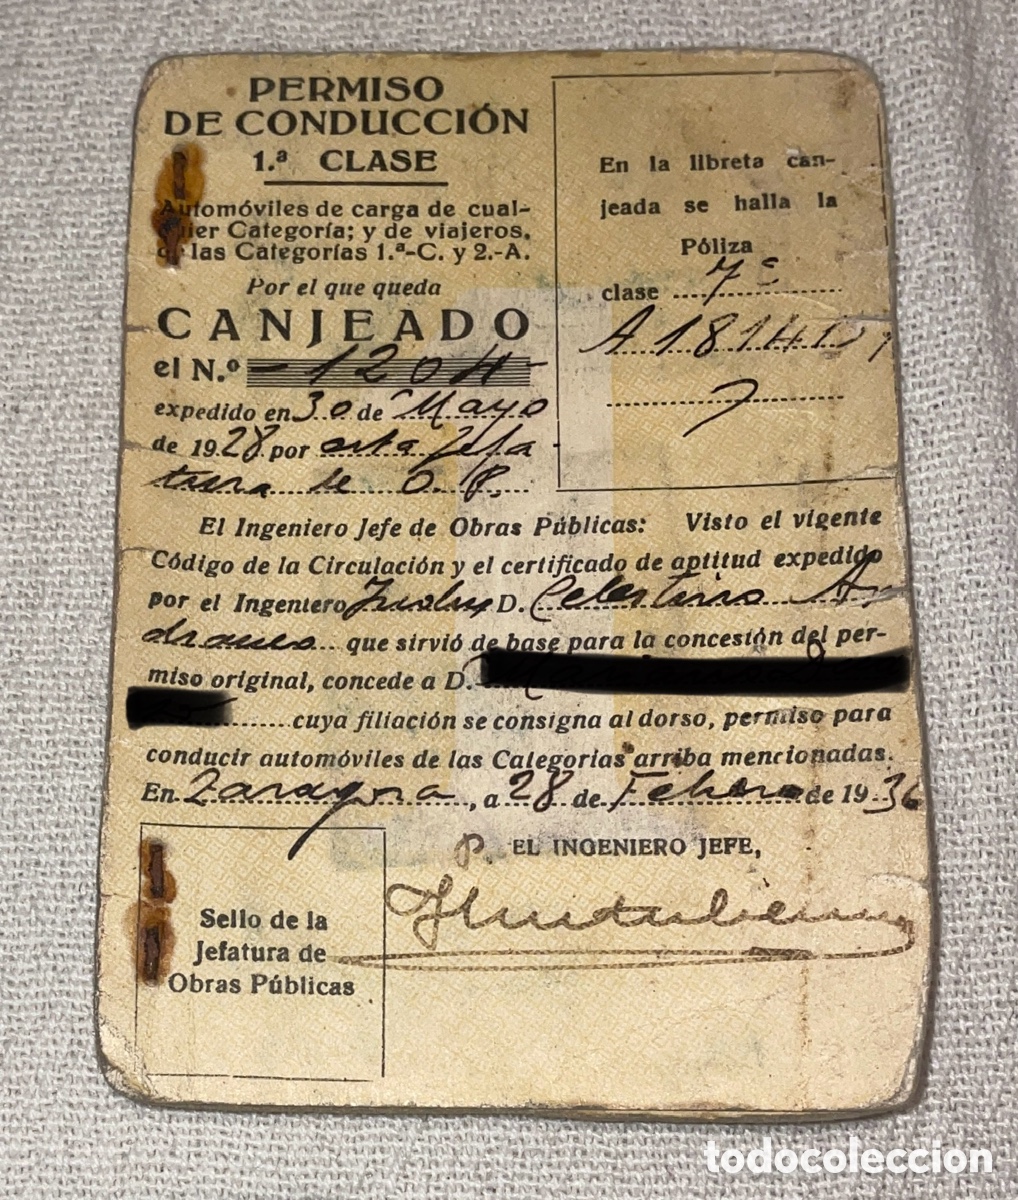 PERMISO
DE CONDUCCIÓN
1.ª CLASE
Automóviles de carga de cual-
quier Categoría; y de viajeros,
de las Categorías 1.ª-C. y 2.-A.
Por el que queda
CANJEADO
el N.º -1204-
expedido en 30 de Mayo
de 1928 por esta Jefa
tura de O.P.
En la libreta can-
jeada se halla la
Póliza
clase 7ª
El Ingeniero Jefe de Obras Públicas: Visto el vigente
Código de la Circulación y el certificado de aptitud expedido
por el Ingeniero D. Celestino
que sirvió de base para la concesión del per-
miso original, concede a D.
cuya filiación se consigna al dorso, permiso para
conducir automóviles de las Categorías arriba mencionadas.
En Zaragoza, a 28 de Febrero de 1936
P. EL INGENIERO JEFE,
Sello de la
Jefatura de
Obras Públicas
todocoleccion